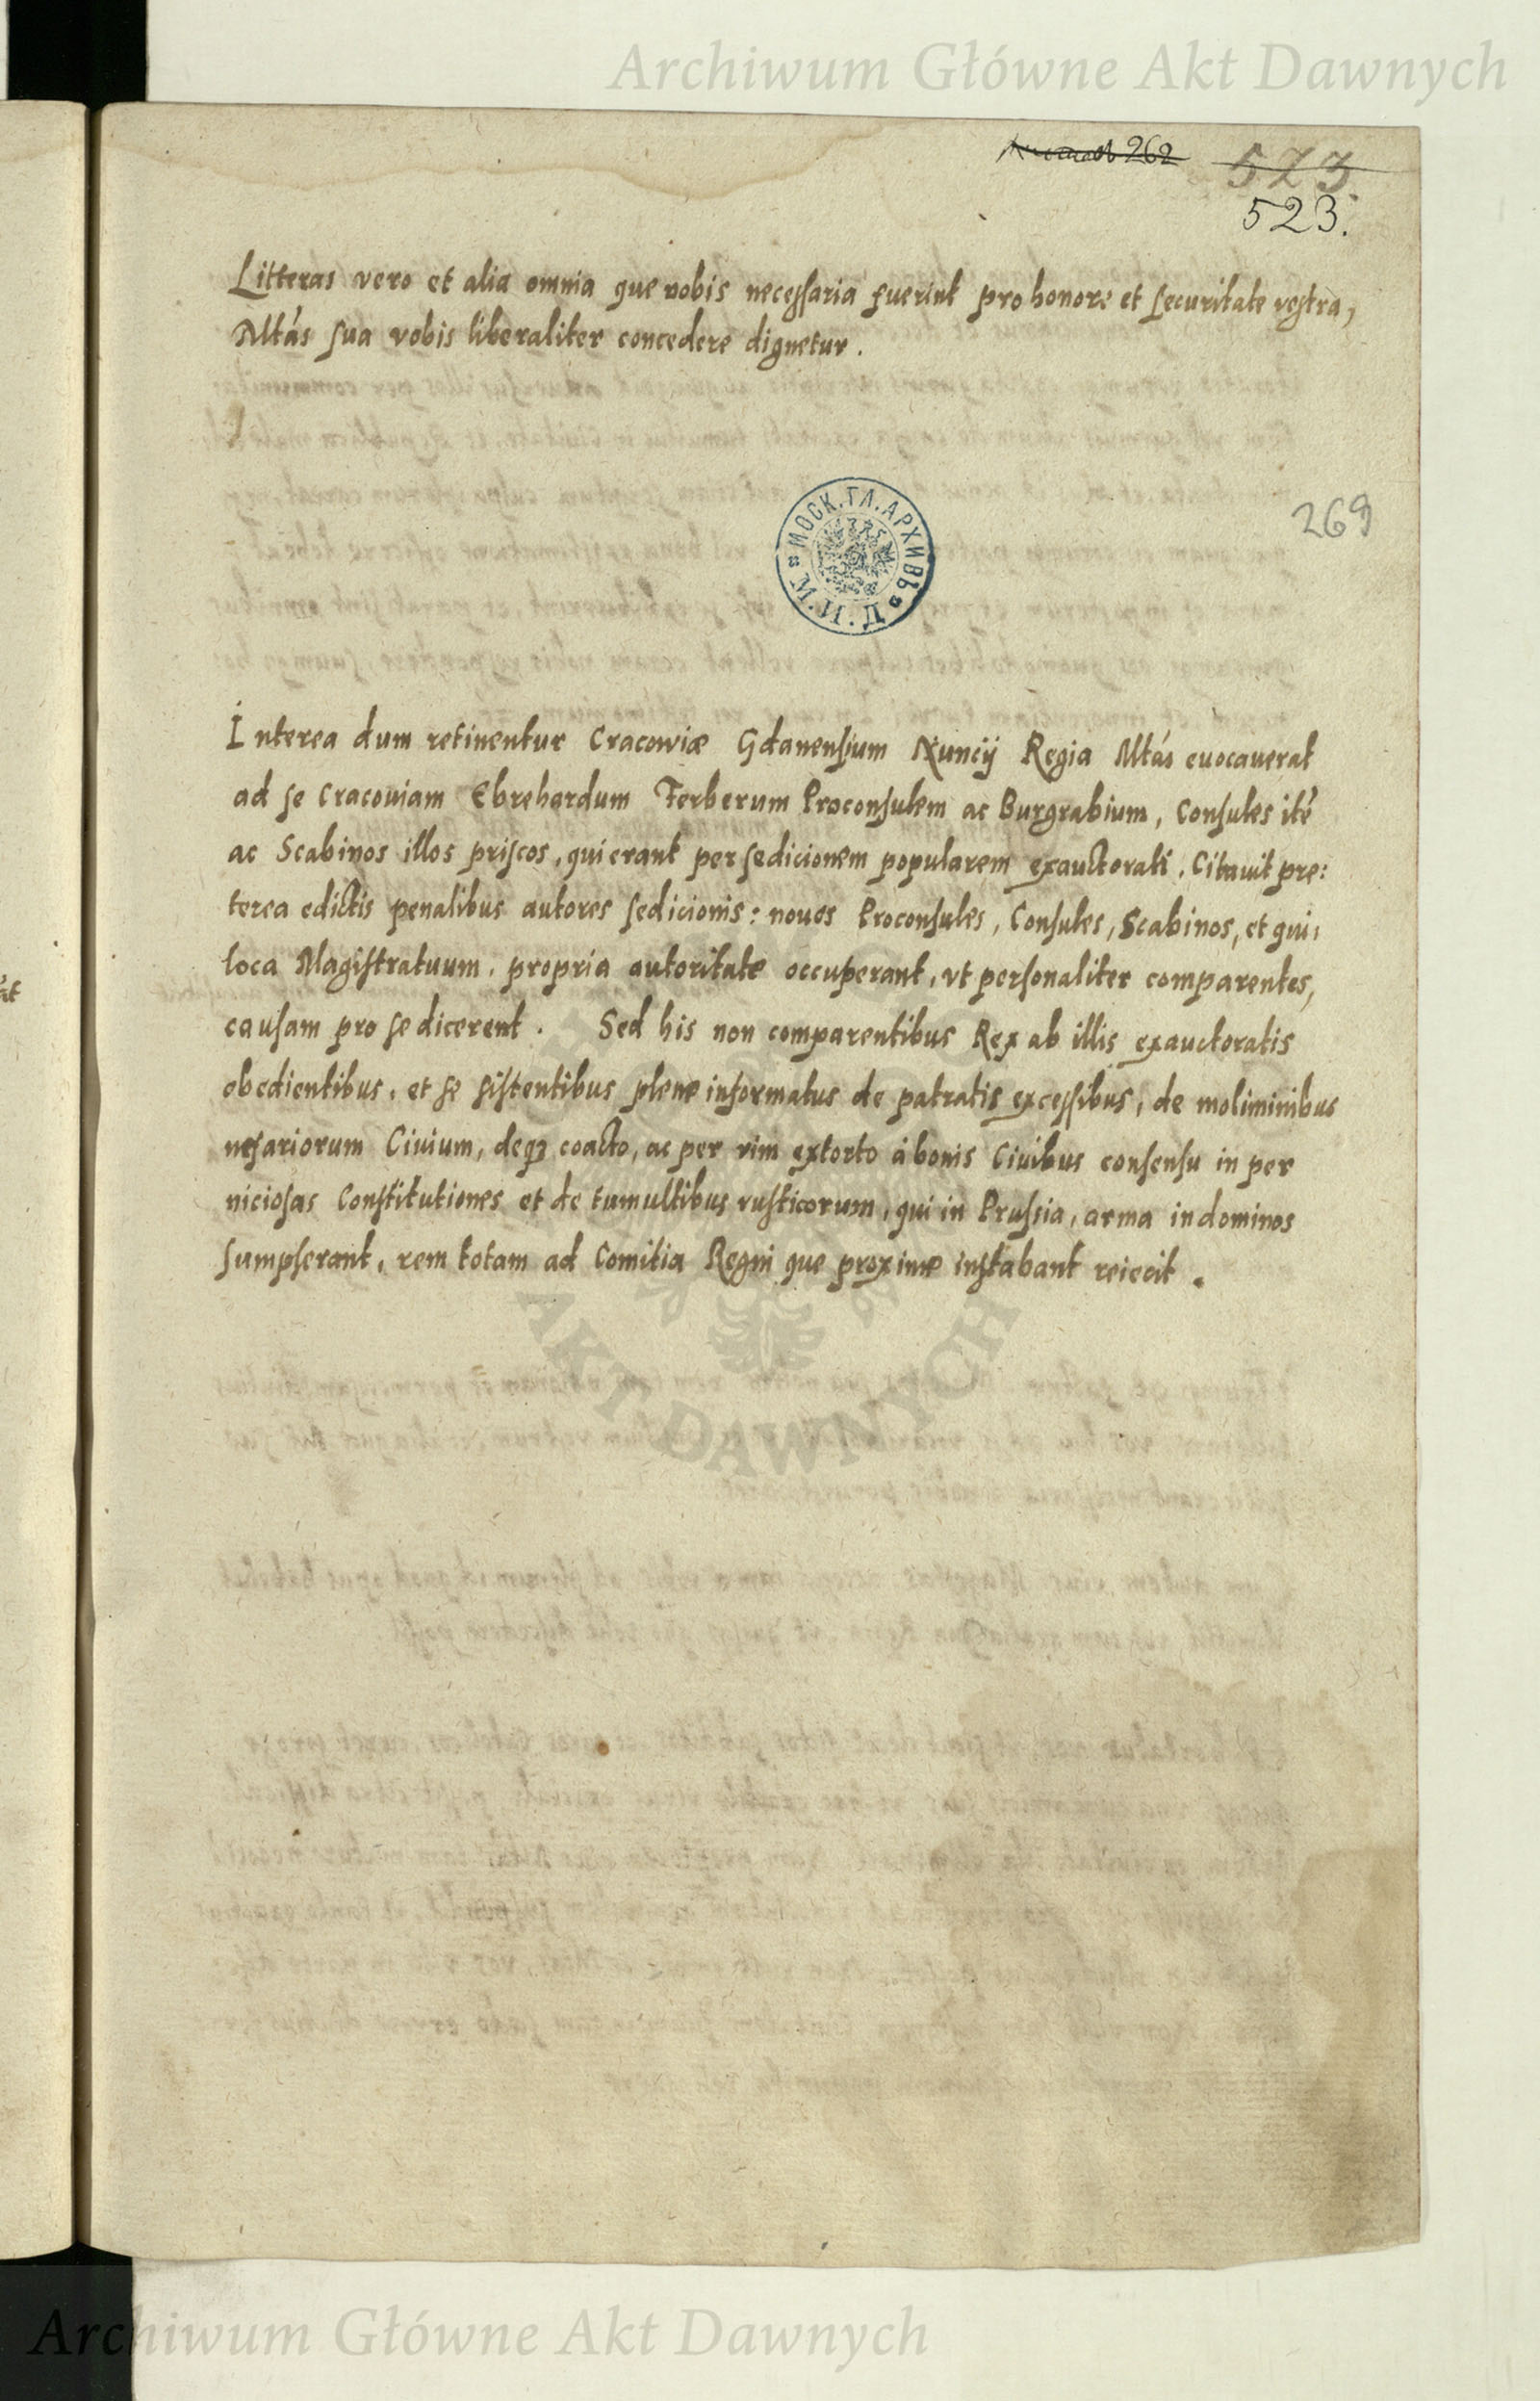 Archiwum Główne Akt Dawnych
262 573
523.
Litteras vero et alia omnia que vobis necessaria fuerint pro honore et securitate vestra,
Mtás sua vobis liberaliter concedere dignetur.
МОСК.ГЛ.АРХИВЪ
М.И.Д.
269
Interea dum retinentur Cracoviæ Gdanensium Nuncij Regia Mtás evocauerat
ad se Cracouiam Ebrehardum Ferberum Proconsulem ac Burgrabium, Consules itẽ
ac Scabinos illos priscos, qui erant per sedicionem popularem exauctorati. Citauit pre:
terea edictis penalibus autores sedicionis: nouos Proconsules, Consules, Scabinos, et qui:
loca Magistratuum, propria autoritate occuperant, vt personaliter comparentes,
causam pro se dicerent. Sed his non comparentibus Rex ab illis exauctoratis
obedientibus, et se sistentibus plene informatus de patratis excessibus, de moliminibus
nefariorum Ciuium, deqꝫ coacto, ac per vim extorto à bonis Ciuibus consensu in per
niciosas Constitutiones et de tumultibus rusticorum, qui in Prussia, arma in dominos
sumpserant, rem totam ad Comitia Regni que proxime instabant reiecit.
AKT DAWNYCH
Archiwum Główne Akt Dawnych